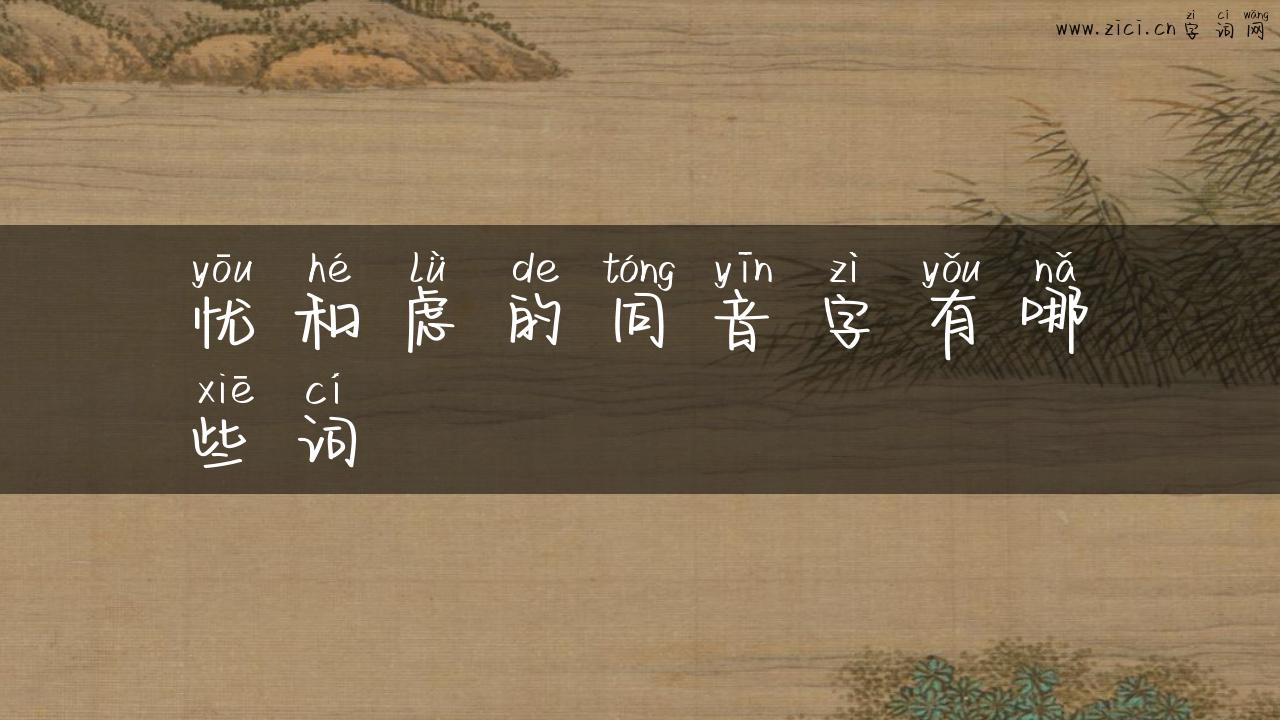 zì cí wǎng
www.zici.cn 字 词 网
yōu hé lǜ de tóng yīn zì yǒu nǎ
忧 和 虑 的 同 音 字 有 哪
xiē cí
些 词